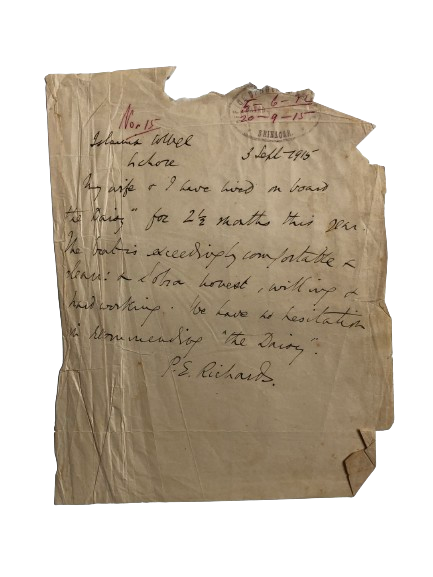 No 15
20-9-15
SRINAGAR
Islamia College
Lahore
3 Sept 1915
My wife & I have lived on board
the Daisy" for 2½ months this year.
The boat is exceedingly comfortable &
clean: & Sobra honest, willing &
hard working. We have no hesitation
in recommending "the Daisy".
P.E. Richards.